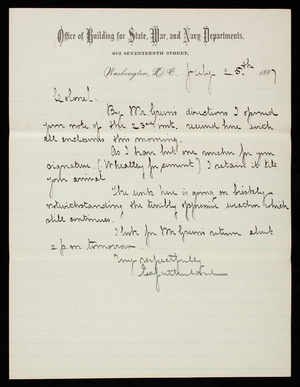 Office of Building for State, War, and Navy Departments,
612 SEVENTEENTH STREET,
Washington, D.C., July 25th 1887
Colonel:
By Mr Green's directions I opened
your note of the 23rd inst, received here with
all enclosures this morning.
As I have but one voucher for your
signature (Wheatley for) I retain it till
your arrival.
The work here is going on briskly
notwithstanding the terribly oppressive weather which
still continues.
I look for Mr Green's return about
2 p.m. tomorrow.
Very respectfully